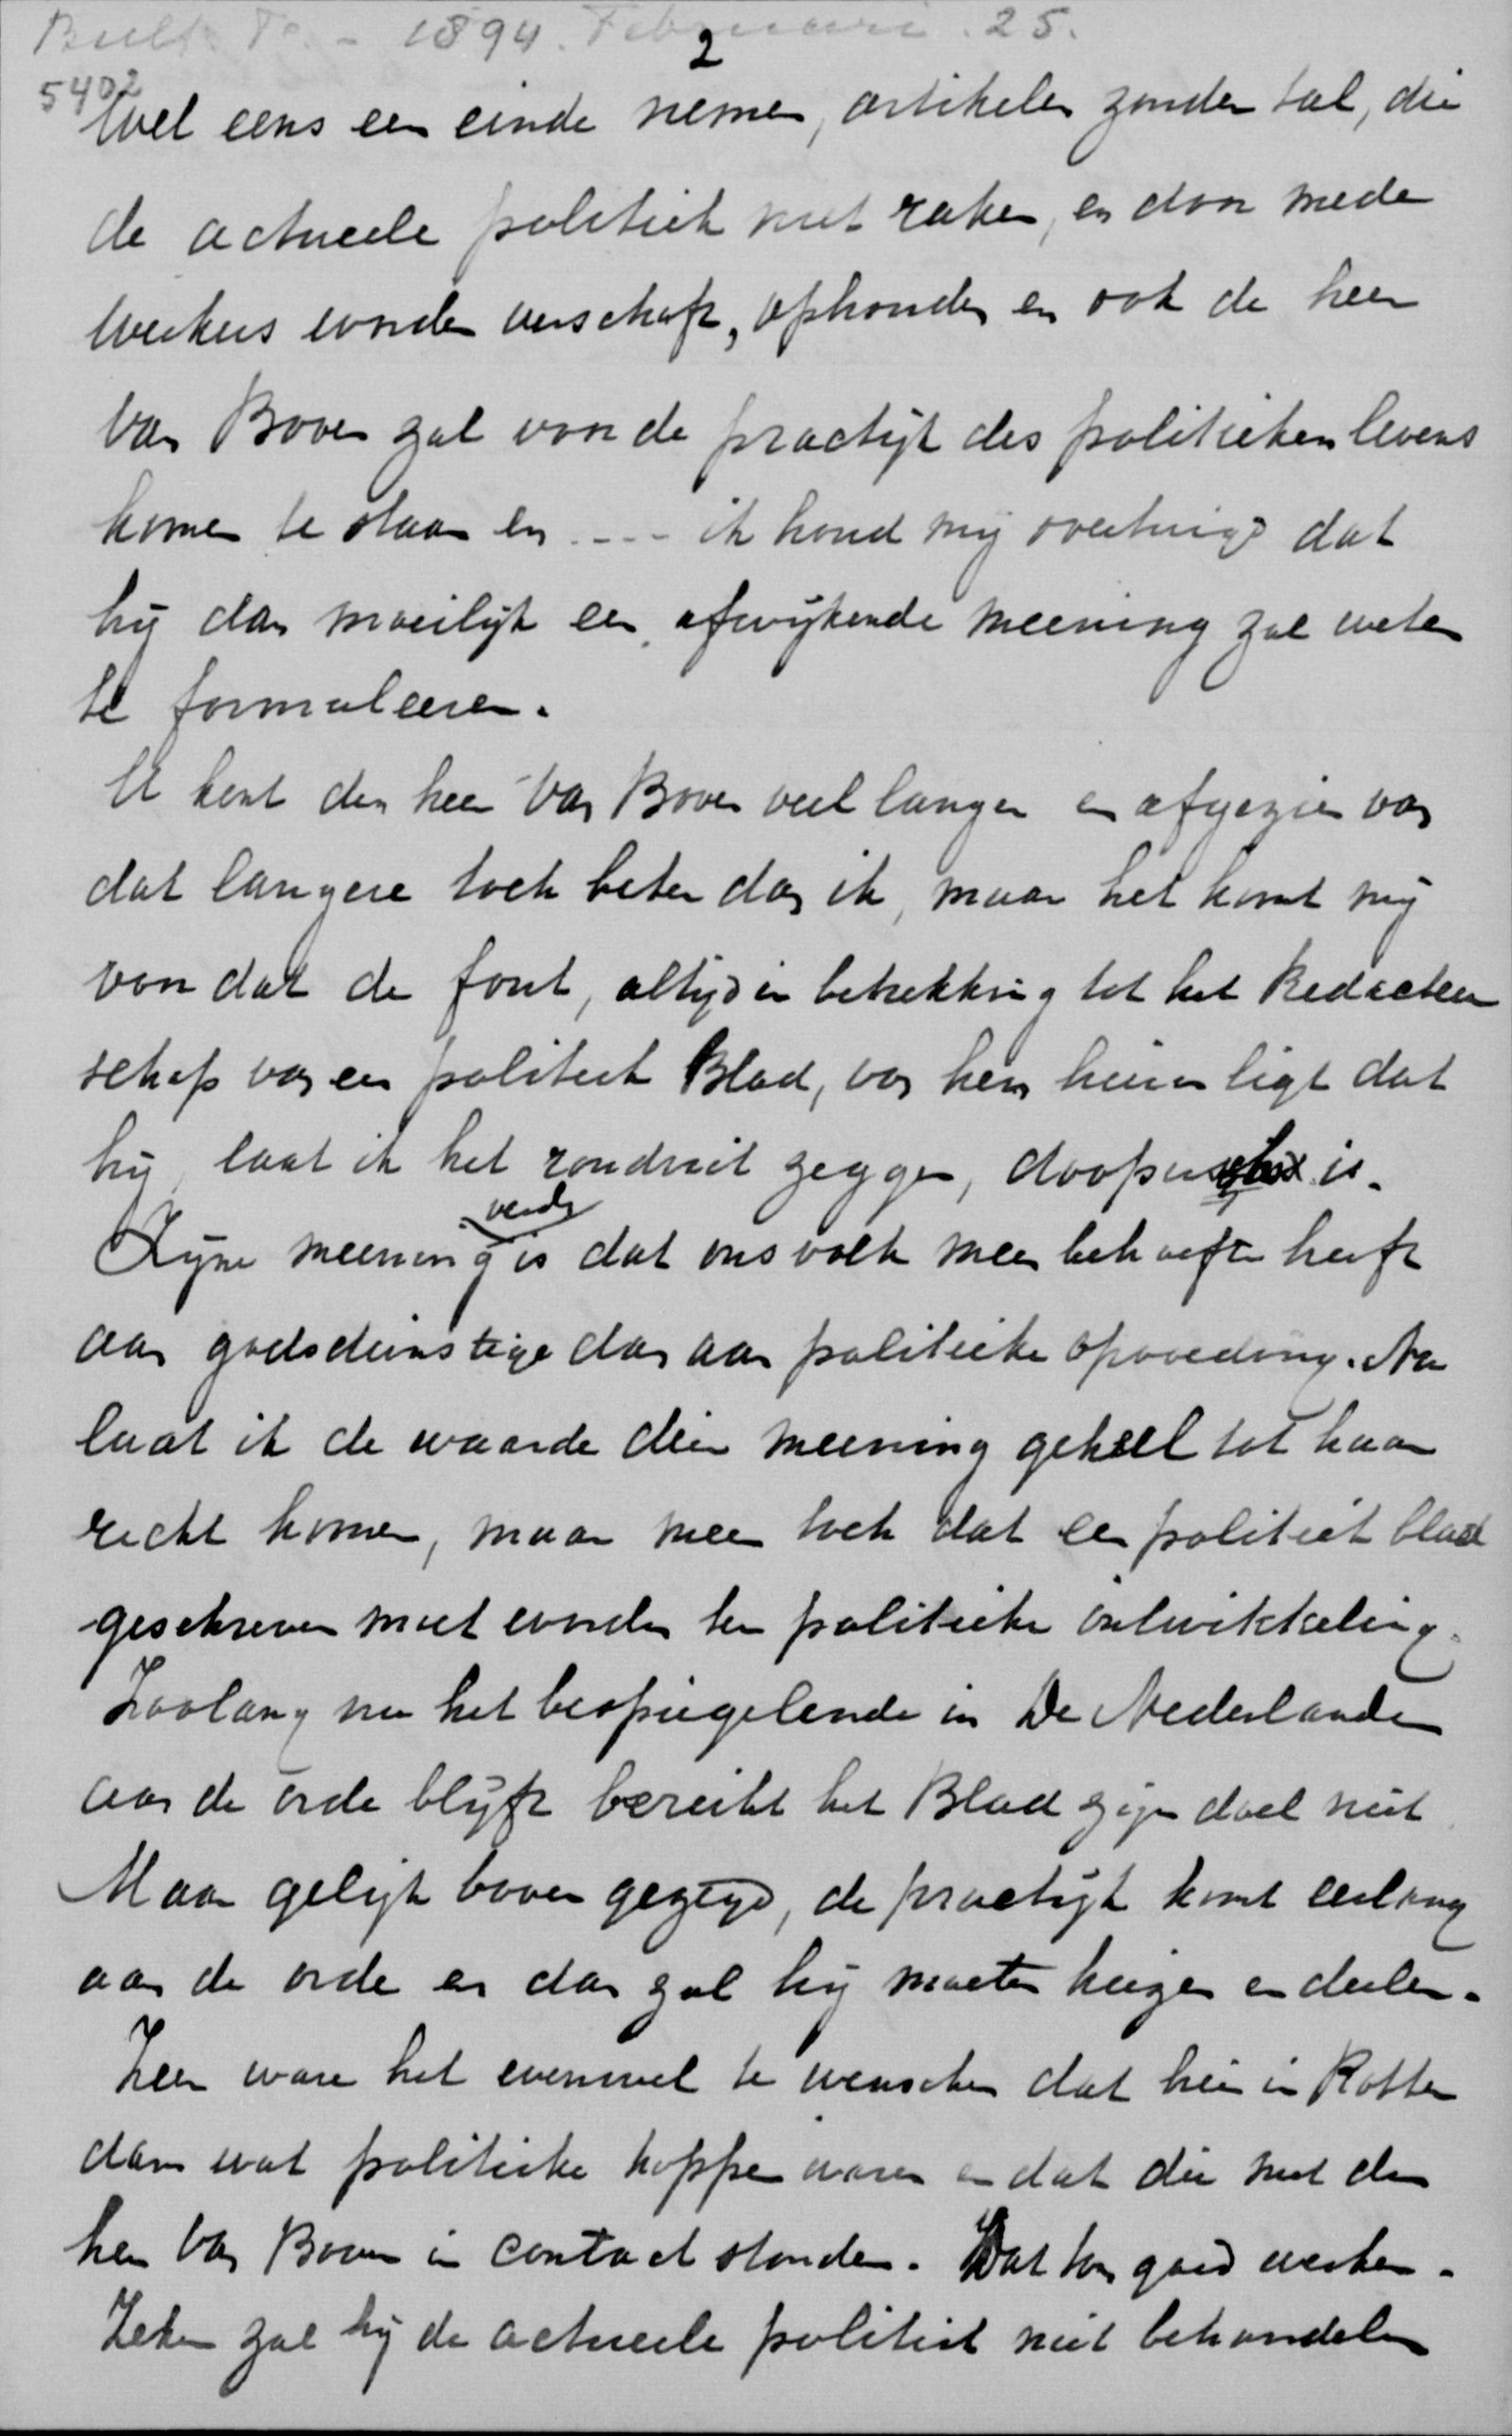 1894. Februari. 25.
2
5402
Wel eens een einde nemen, artikelen zonder tal, die
de actueele politiek niet raken, en door mede
werkers worden verschaft, ophouden en ook de heer
Van Boven zal voor de practijk des politieken levens
komen te staan en .... ik houd mij overtuigd dat
hij dan moeilijk een afwijkende meening zal weten
te formuleeren.
U kent den heer Van Boven veel langer en afgezien van
dat langere toch beter dan ik, maar het komt mij
voor dat de fout, altijd in betrekking tot het Redacteur
schap van een politiek Blad, van hem hierin ligt dat
hij, laat ik het ronduit zeggen, doopersch is.
verder
Zijne meening is dat ons volk meer behoefte heeft
aan godsdienstige dan aan politieke opvoeding. Nu
laat ik de waarde dier meening geheel tot haar
recht komen, maar meen toch dat een politiek blad
geschreven moet worden ter politieke ontwikkeling.
Zoolang nu het bespiegelende in De Nederlander
aan de orde blijft bereikt het Blad zijn doel niet.
Maar gelijk boven gezegd, de practijk komt eerlang
aan de orde en dan zal hij moeten kiezen en deelen.
Zeer ware het evenwel te wenschen dat hier in Rotter
dam wat politieke koppen waren en dat die met den
heer Van Boven in contact stonden. Dat kon goed werken.
Zeker zal hij de actueele politiek niet behandelen